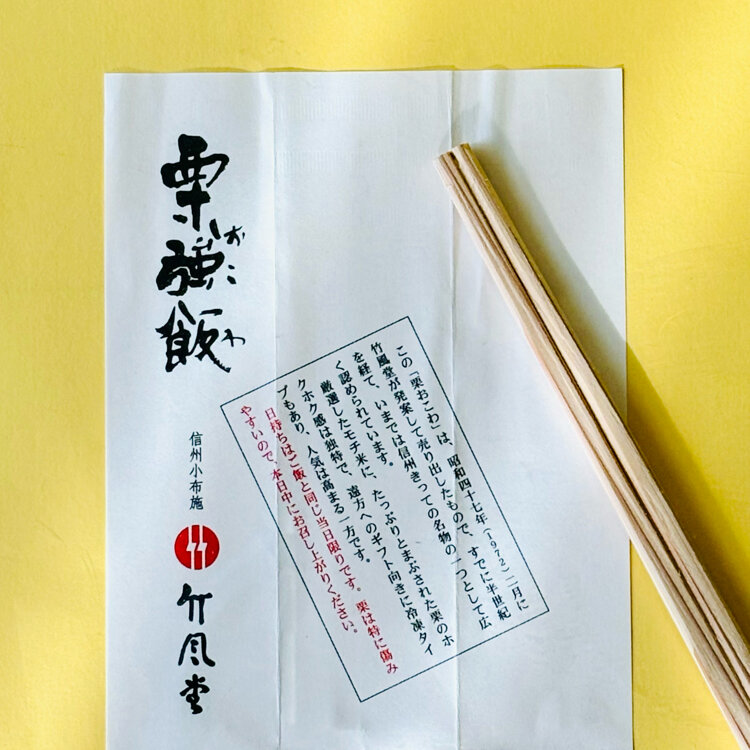 栗強飯
おこわ
信州小布施
竹風堂
この「栗おこわ」は、昭和四十七年(1972)二月に
竹風堂が発案して売り出したもので、すでに半世紀
を経て、いまでは信州きっての名物の一つとして広
く認められています。
厳選したモチ米に、たっぷりとまぶされた栗のホ
クホク感は独特で、遠方へのギフト向きに冷凍タイ
プもあり、人気は高まる一方です。
日持ちはご飯と同じ当日限りです。栗は特に傷み
やすいので、本日中にお召し上がりください。